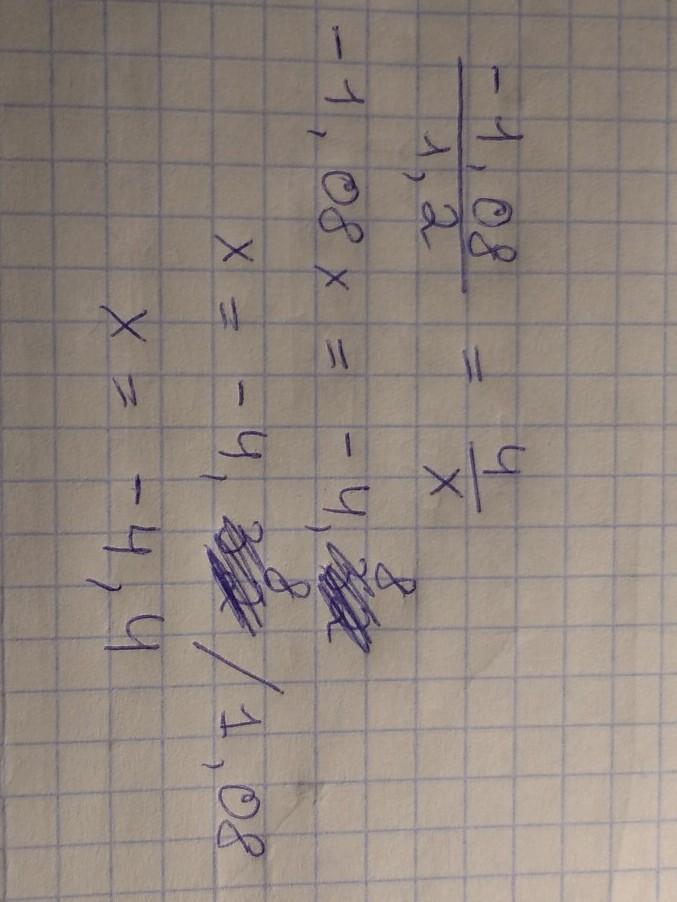 -1,08 / 1,2 = 4 / x
-1,08x = -4,8
x = -4,8 / 1,08
x = -4,4